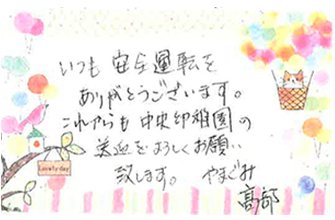 いつも 安全運転を
ありがとうございます。
これからも 中央幼稚園の
送迎をよろしくお願い
致します。 やまぐみ
高部
Lovely day